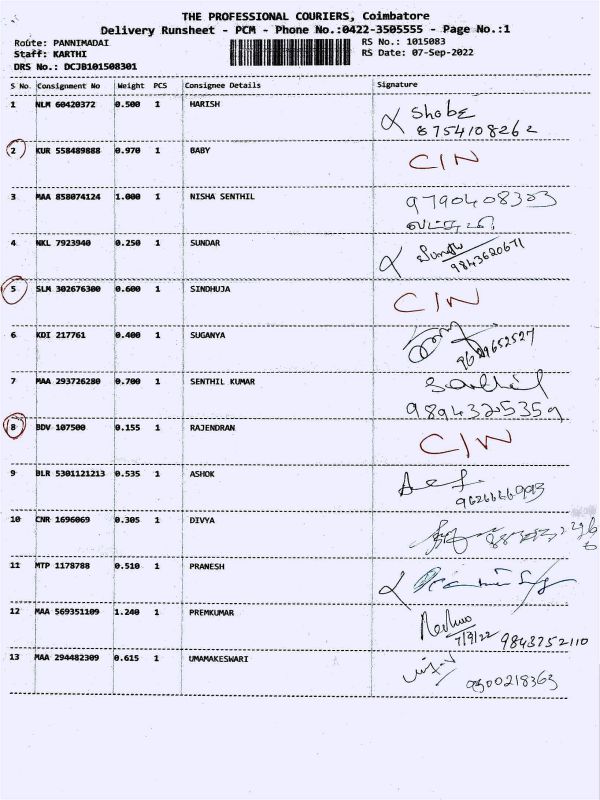 THE PROFESSIONAL COURIERS, Coimbatore
Delivery Runsheet - PCM - Phone No.:0422-3505555 - Page No.:1
Route: PANNIMADAI RS No.: 1015083
Staff: KARTHI RS Date: 07-Sep-2022
DRS No.: DCJB101508301
S No. Consignment No Weight PCS Consignee Details Signature
1 NLM 60420372 0.500 1 HARISH Shobe
8754108262
2 KUR 558489888 0.970 1 BABY CIN
3 MAA 858074124 1.000 1 NISHA SENTHIL 9790408303
4 NKL 7923940 0.250 1 SUNDAR
9843620671
5 SLM 302676300 0.600 1 SINDHUJA CIN
6 KDI 217761 0.400 1 SUGANYA
9629652527
7 MAA 293726280 0.700 1 SENTHIL KUMAR
9894325359
8 BDV 107500 0.155 1 RAJENDRAN CIN
9 BLR 5301121213 0.535 1 ASHOK
10 CNR 1696069 0.305 1 DIVYA
11 MTP 1178788 0.510 1 PRANESH
12 MAA 569351109 1.240 1 PREMKUMAR
7/9/22 9843752110
13 MAA 294482309 0.615 1 UMAMAKESWARI
9500218363